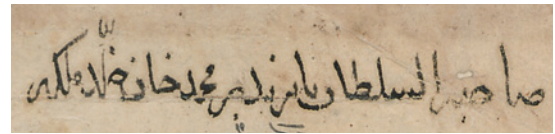 صاحبه السلطان بايزيد بن محمد خان خلد ملكه